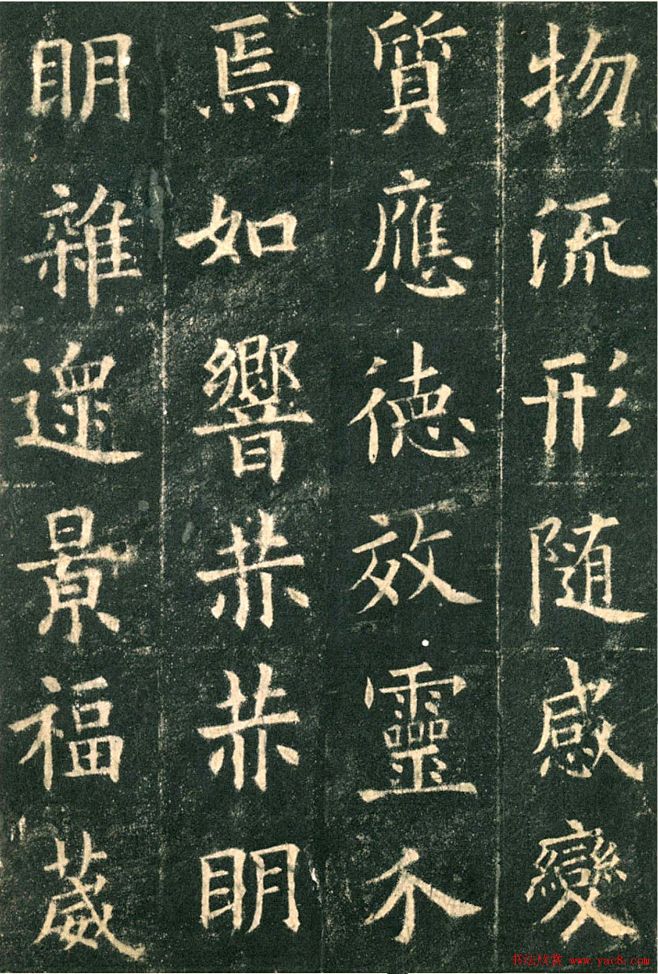 物流形随感變
質應徳效靈介
焉如響赫赫明
明雜遝景福葳
书法欣赏 www.yac8.com